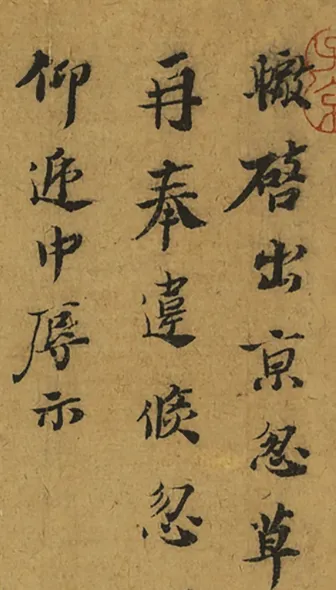 轍啓出京怱草
再奉違倏忽
仰遞中辱示